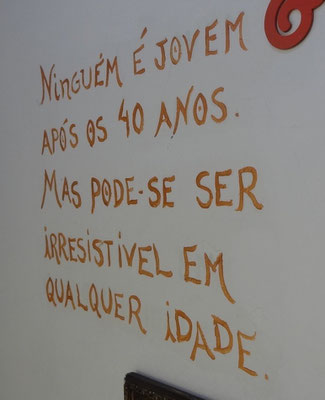 NINGUÉM É JOVEM
APÓS OS 40 ANOS.
MAS PODE-SE SER
IRRESISTÍVEL EM
QUALQUER IDADE.